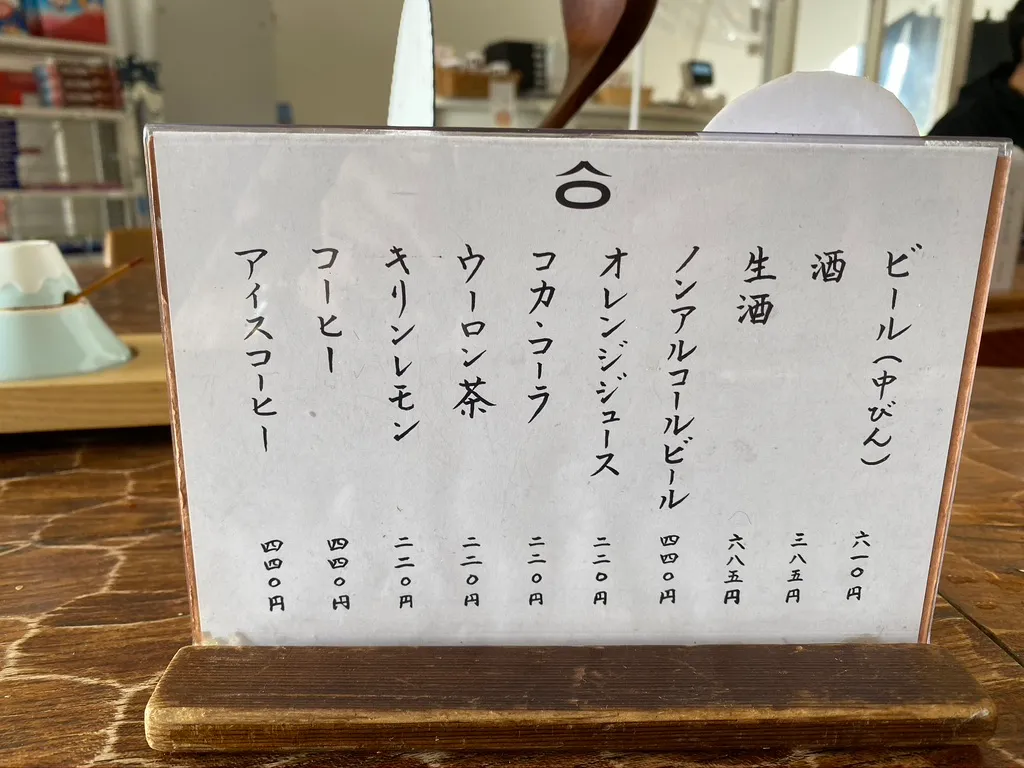 ビール(中びん) 六一〇円
酒 三八五円
生酒 六八五円
ノンアルコールビール 四四〇円
オレンジジュース 二二〇円
コカ・コーラ 二二〇円
ウーロン茶 二二〇円
キリンレモン 二二〇円
コーヒー 四四〇円
アイスコーヒー 四四〇円